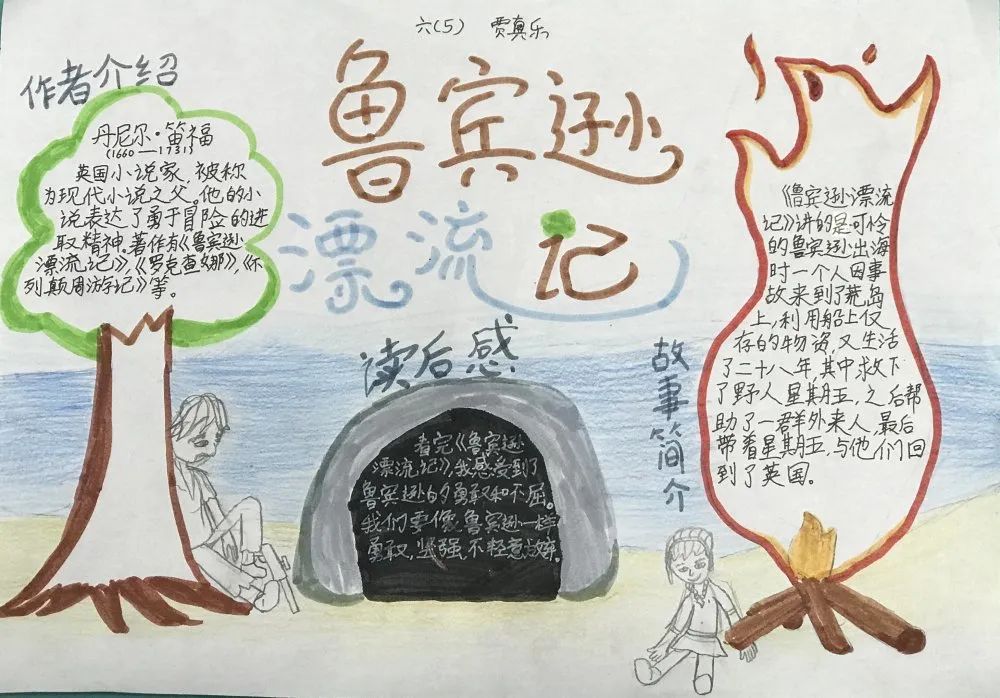 六(5) 贾真乐
鲁宾逊
漂流记
作者介绍
丹尼尔·笛福
(1660—1731)
英国小说家,被称
为现代小说之父。他的小
说表达了勇于冒险的进
取精神。著作有《鲁宾逊
漂流记》,《罗克查娜》,《不
列颠周游记》等。
读后感
看完《鲁宾逊
漂流记》,我感受到了
鲁宾逊的勇敢和不屈。
我们要像鲁宾逊一样
勇敢,坚强,不轻意放弃。
故事简介
《鲁宾逊漂流
记》讲的是可怜
的鲁宾逊出海
时一个人因事
故来到了荒岛
上,利用船上仅
存的物资,又生活
了二十八年,其中救下
了野人星期五,之后帮
助了一群外来人,最后
带着星期五,与他们回
到了英国。